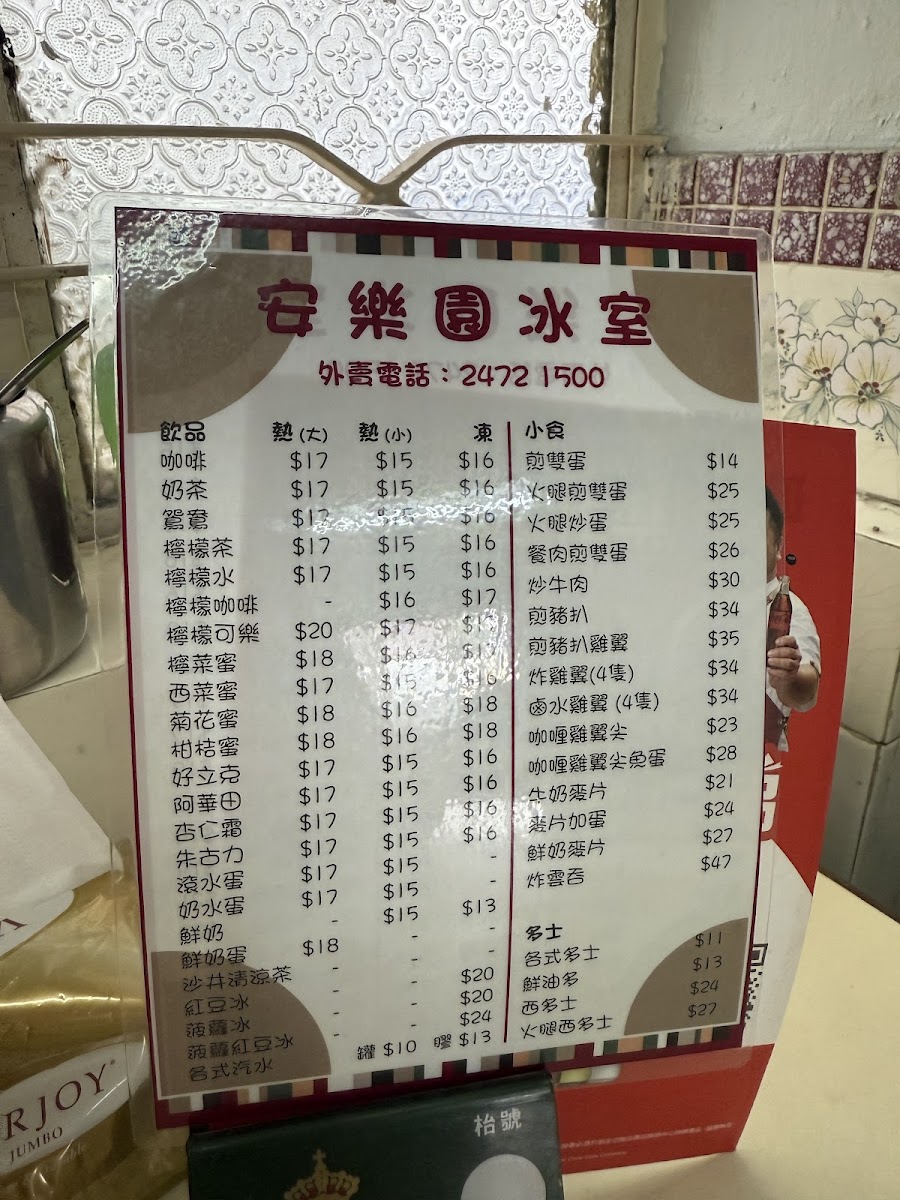 安樂園冰室
外賣電話：2472 1500
飲品 熱(大) 熱(小) 凍
咖啡 $17 $15 $16
奶茶 $17 $15 $16
鴛鴦 $17 $15 $16
檸檬茶 $17 $15 $16
檸檬水 $17 $15 $16
檸檬咖啡 - $16 $17
檸檬可樂 $20 $17 $17
檸菜蜜 $18 $16 $17
西菜蜜 $17 $15 $16
菊花蜜 $18 $16 $18
柑桔蜜 $18 $16 $18
好立克 $17 $15 $16
阿華田 $17 $15 $16
杏仁霜 $17 $15 $16
朱古力 $17 $15 $16
滾水蛋 $17 $15 -
奶水蛋 $17 $15 -
鮮奶 - $15 $13
鮮奶蛋 $18 - -
沙井清涼茶 - - -
紅豆冰 - - $20
菠蘿冰 - - $20
菠蘿紅豆冰 - - $24
各式汽水 罐 $10 膠 $13
小食
煎雙蛋 $14
火腿煎雙蛋 $25
火腿炒蛋 $25
餐肉煎雙蛋 $26
炒牛肉 $30
煎豬扒 $34
煎豬扒雞翼 $35
炸雞翼(4隻) $34
鹵水雞翼 (4隻) $34
咖喱雞翼尖 $23
咖喱雞翼尖魚蛋 $28
牛奶麥片 $21
麥片加蛋 $24
鮮奶麥片 $27
炸雲吞 $47
多士
各式多士 $11
鮮油多 $13
西多士 $24
火腿西多士 $27
RJOY
JUMBO
枱號